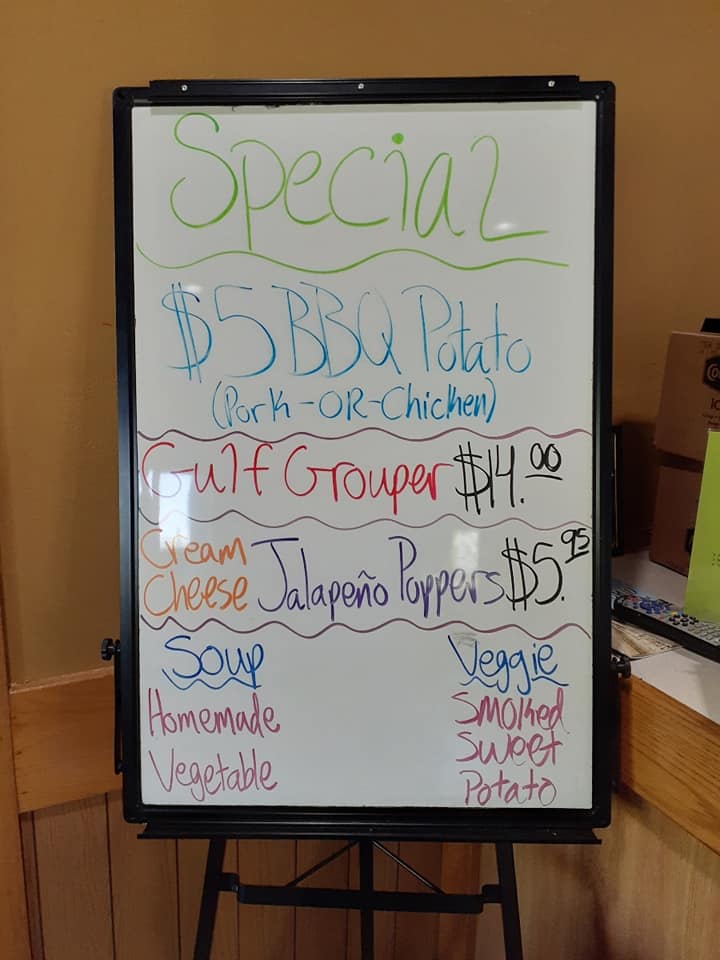 Special
$5 BBQ Potato
(Pork-OR-Chicken)
Gulf Grouper $14.00
Cream Cheese Jalapeño Poppers $5.95
Soup
Homemade
Vegetable
Veggie
Smoked
Sweet
Potato